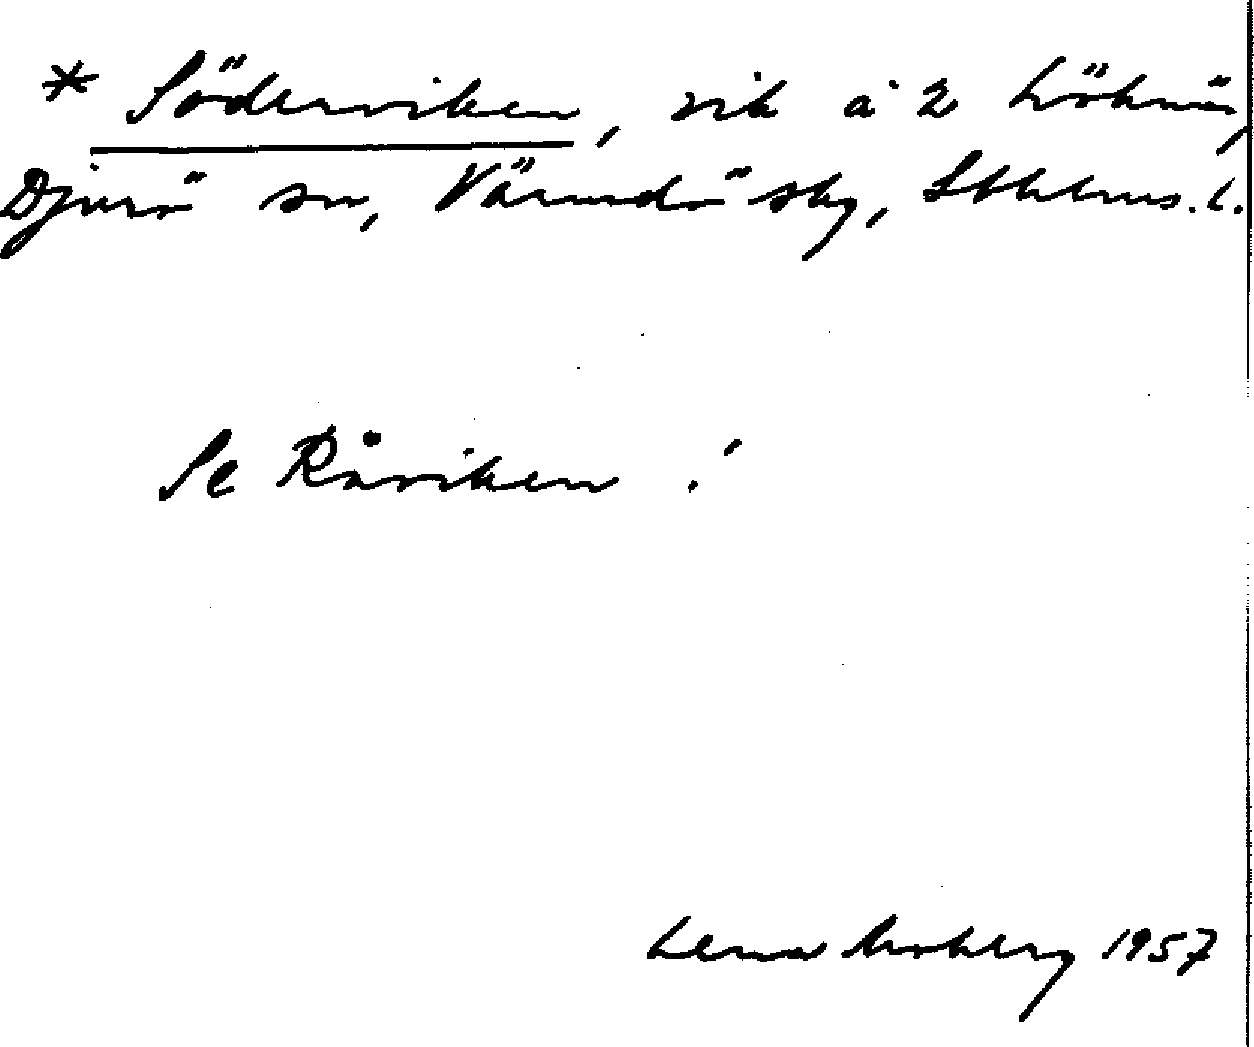 * Söderviken, vik å 2 Löknäs,
Djurö sn, Värmdö skg, Sthlms. l.
Se Råviken !
Lena Moberg 1957